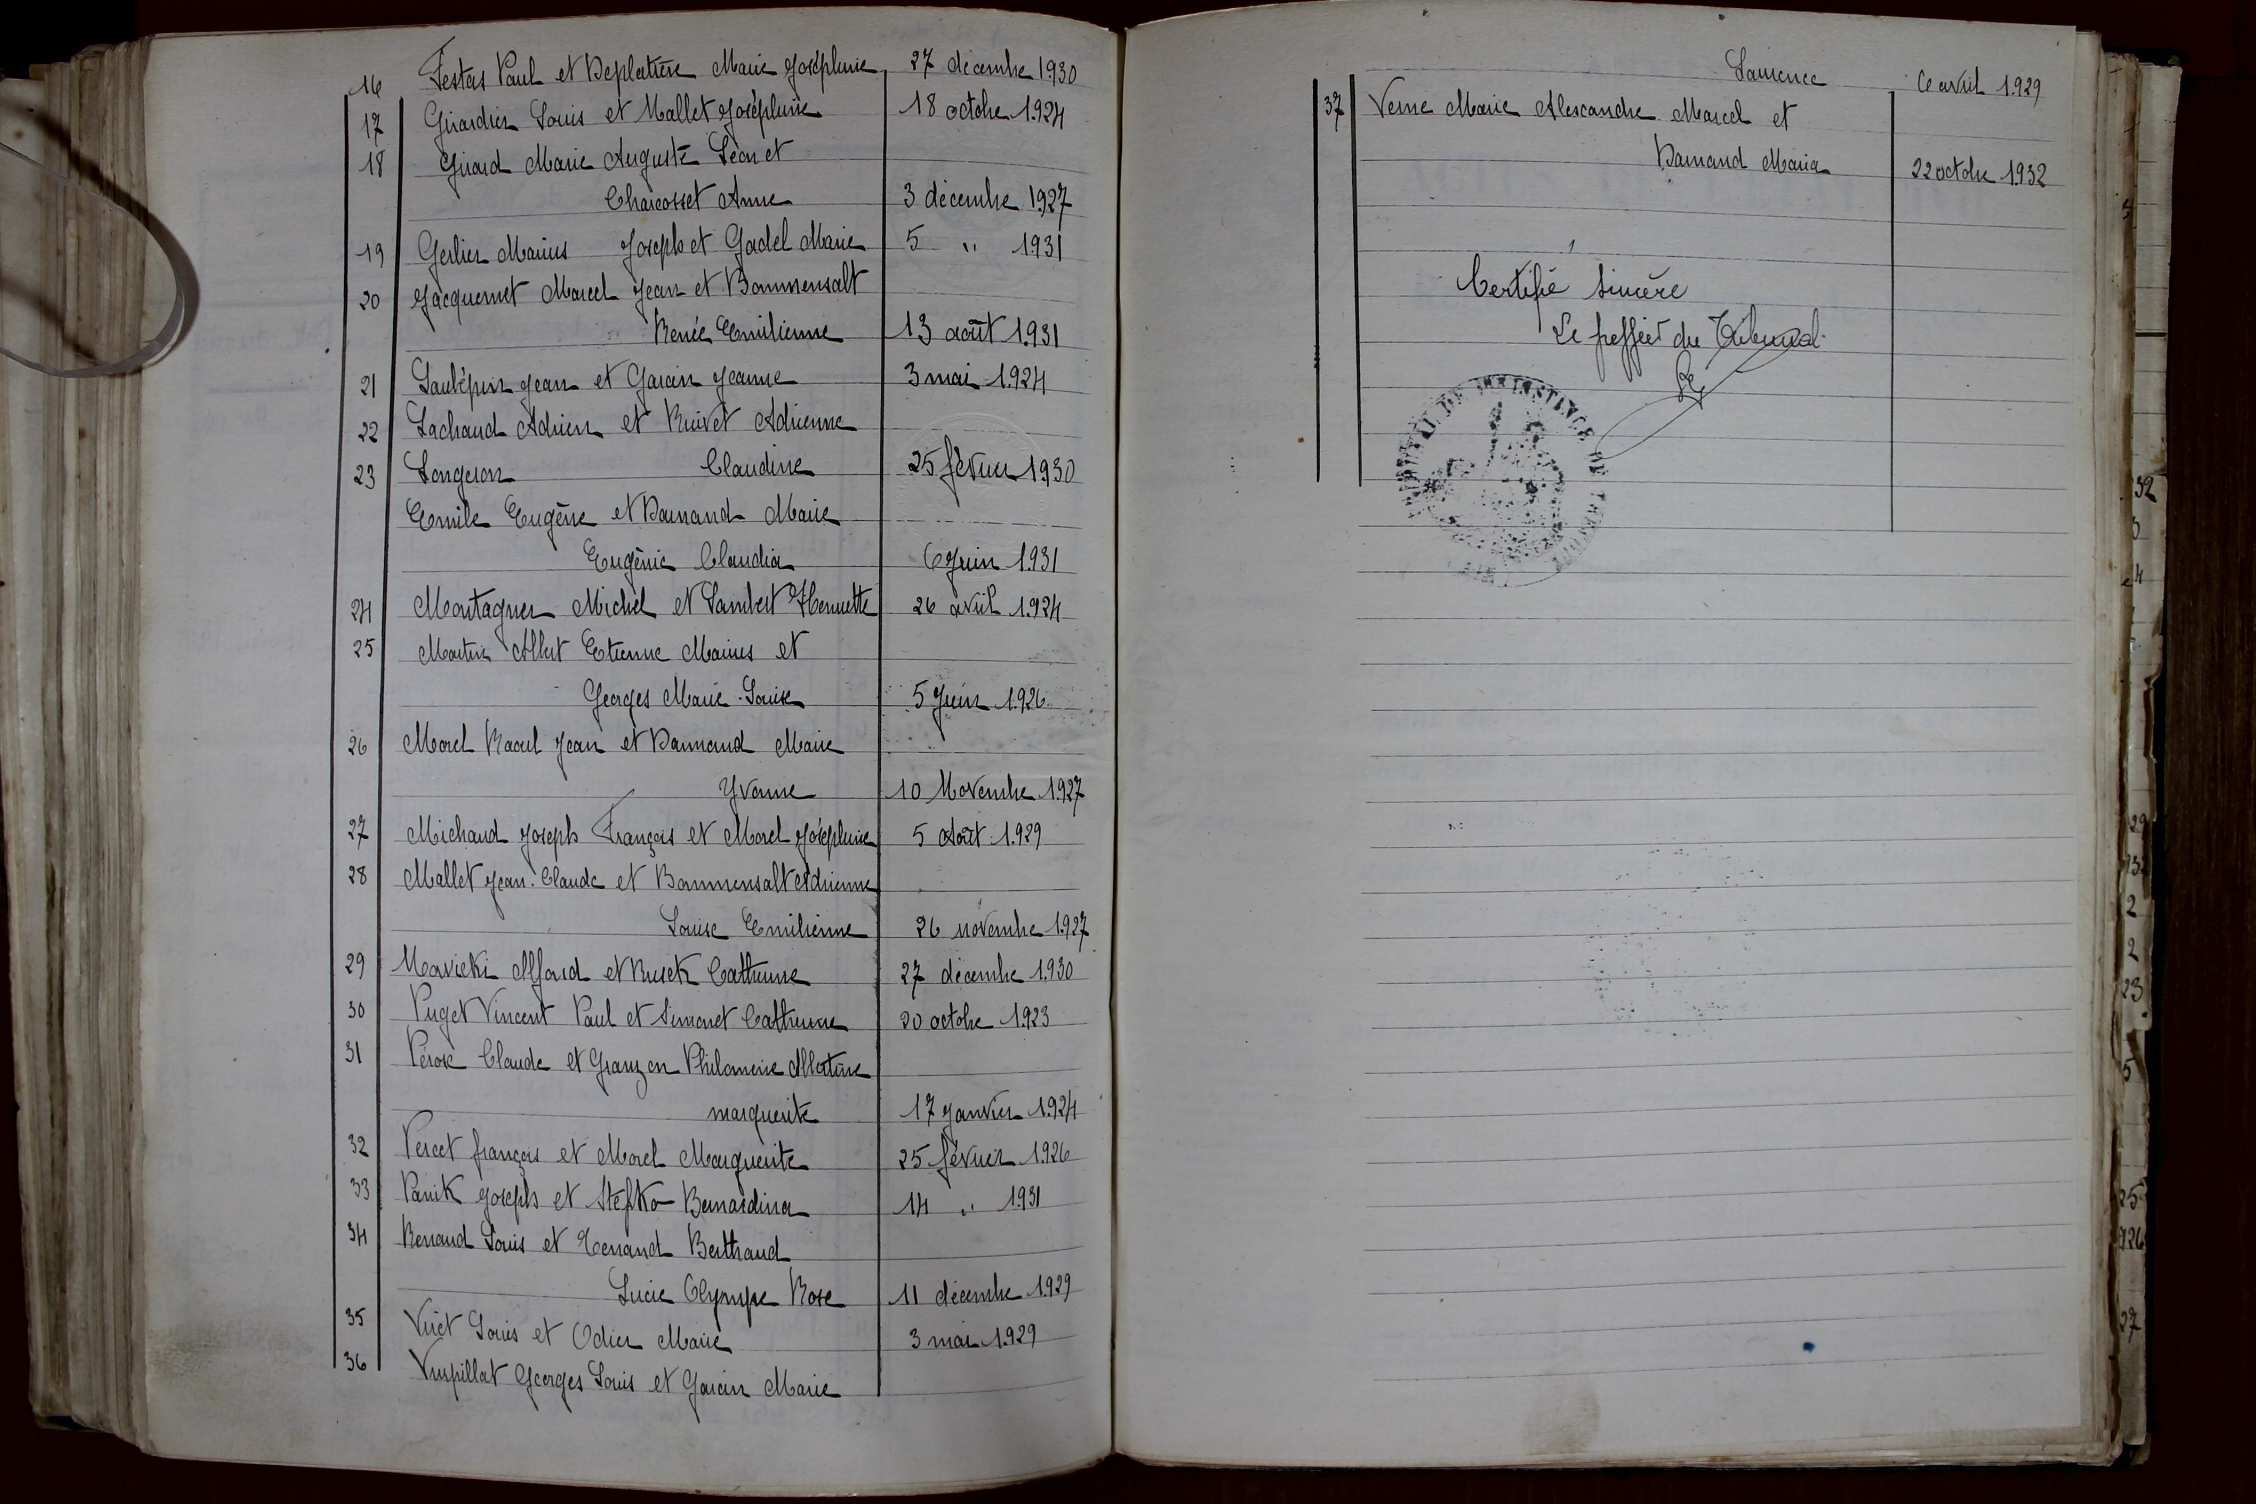 16 Festas Paul et Deplatière Marie Joséphine 27 décembre 1930
17 Girardier Louis et Mallet Joséphine 18 octobre 1924
18 Girard Marie Auguste Léon et
Charcosset Anne 3 décembre 1927
19 Gerlier Marius Joseph et Gadel Marie 5 " 1931
20 Jacquemet Marcel Jean et Bommensalt
Renée Emilienne 13 août 1931
21 Laulépin Jean et Garcin Jeanne 3 mai 1924
22 Lachaud Adrien et Ruivet Adrienne
23 Longeron Claudine 25 février 1930
Emile Eugène et Darnand Marie
Eugènie Claudia 6 Juin 1931
24 Montagner Michel et Lambert Henriette 26 avril 1924
25 Martin Albert Etienne Marius et
Georges Marie-Louise 5 Juin 1926
26 Morel Raoul Jean et Darmand Marie
Yvonne 10 Novembre 1927
27 Michaud Joseph François et Morel Joséphine 5 Août 1929
28 Mallet Jean-Claude et Bommensalt Adrienne
Louise Emilienne 26 novembre 1927
29 Mavicki Alfard et Rusek Catherine 27 décembre 1930
30 Puget Vincent Paul et Simonet Catherine 20 octobre 1923
31 Pérose Claude et Granzon Philomène Albertine
marguerite 17 Janvier 1924
32 Percet françois et Morel Marguerite 25 février 1926
33 Panik Joseph et Stefko Bernardina 14 " 1931
34 Renaud Louis et Tenand Berthaud
Lucie Olympe Rose 11 décembre 1929
35 Viret Louis et Odier Marie 3 mai 1929
36 Vuspillat Georges Louis et Garcin Marie
Laurence 6 avril 1929
37 Verne Marie Alexandre Marcel et
Darnand Maria 22 octobre 1932
Certifié sincère
Le greffier du Tribunal